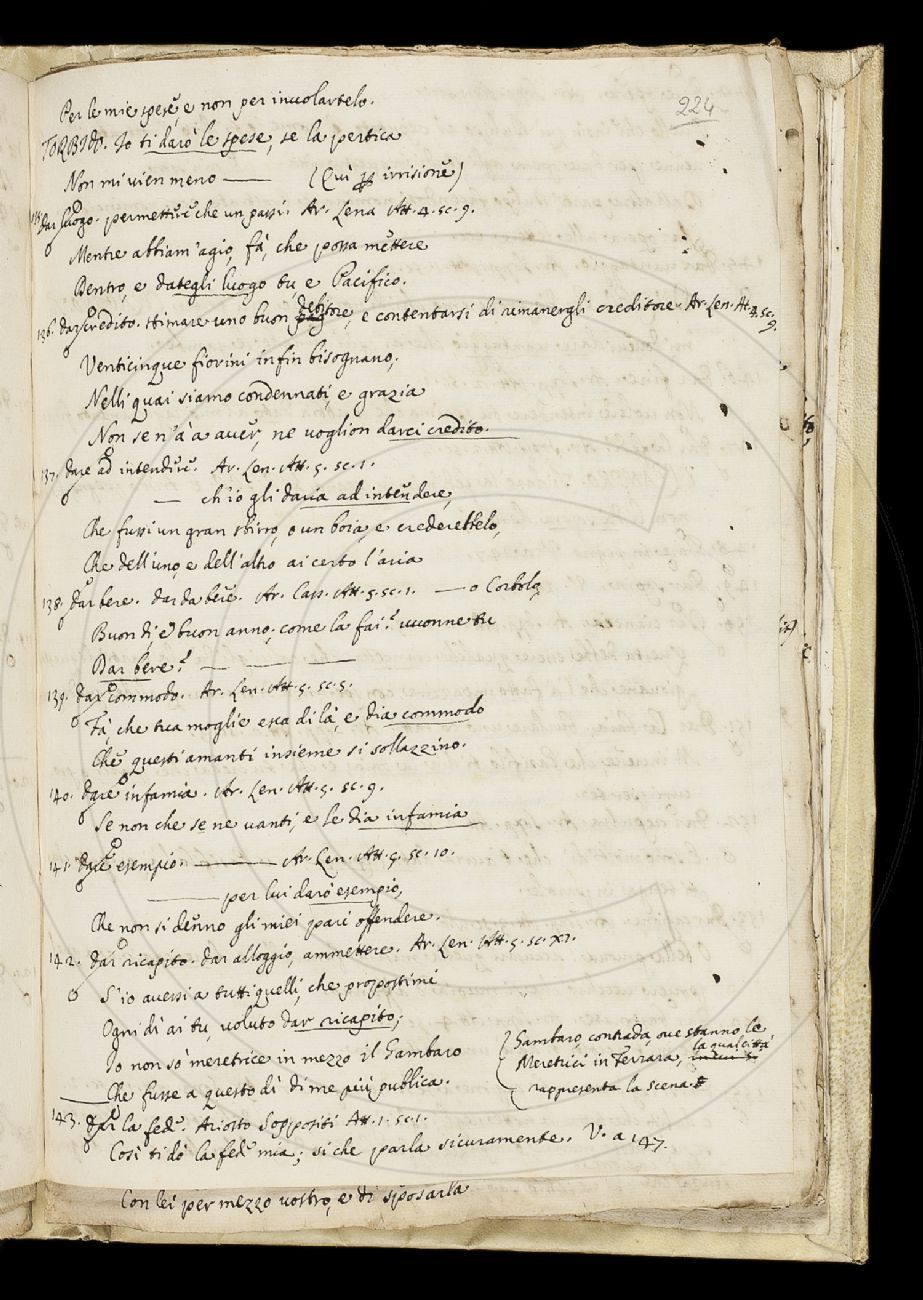 224
Per le mie spese, e non per involartelo.
TORBIDO. Io ti darò le spese, se la pertica
Non mi vien meno —— (Quì irrisione)
135. dar luogo. permettere che un passi. Ar. Lena Att. 4. sc. 9.
Mentre abbiam'agio, fà, che possa mettere
Dentro, e dategli luogo tu, e Pacifico.
136. dar credito. stimare uno buon debitore, e contentarsi di rimanergli creditore. Ar. Len. At. 4. sc. 9.
Venticinque fiorini infin bisognano;
Nelli quai siamo condennati, e grazia
Non se n'à a aver, ne voglion darci credito.
137. dare ad intendere. Ar. Len. Att. 5. sc. 1.
— ch'io gli daria ad intendere,
Che fussi un gran sbirro, o un boia, e crederebbelo,
Che dell'uno, e dell'altro ai certo l'aria
138. dar bere. dar da bere. Ar. Cass. Att. 5. sc. 1. — o Corbolo
Buon dì, e buon anno; come la fai? vuonne tu
Dar bere? — ——
139. dar commodo. Ar. Len. Att. 5. sc. 5.
Fà, che tua moglie esca di là, e dia commodo
Che questi amanti insieme si sollazzino.
140. dare infamia. Ar. Len. Att. 5. sc. 9.
Se non che se ne vanti, e le dia infamia
141. dare esempio. —— Ar. Len. Att. 5. sc. 10.
—— per lui darò esempio,
Che non si denno gli miei pari offendere.
142. dar ricapito. dar alloggio, ammettere. Ar. Len. Att. 5. sc. XI.
S'io avessi a tutti quelli, che propostimi
Ogni dì ai tu, voluto dar ricapito;
Io non so meretrice in mezzo il Gambaro
Che fusse a questo dì di me più publica.
Gambaro, contrada, ove stanno le
Meretrici in Ferrara, la qual città
rappresenta la scena.
143. dar la fede. Ariosto Soppositi Att. 1. sc. 1.
Così ti dò la fede mia; si che parla sicuramente. V. a 147.
Con lei per mezzo vostro, e di sposarla